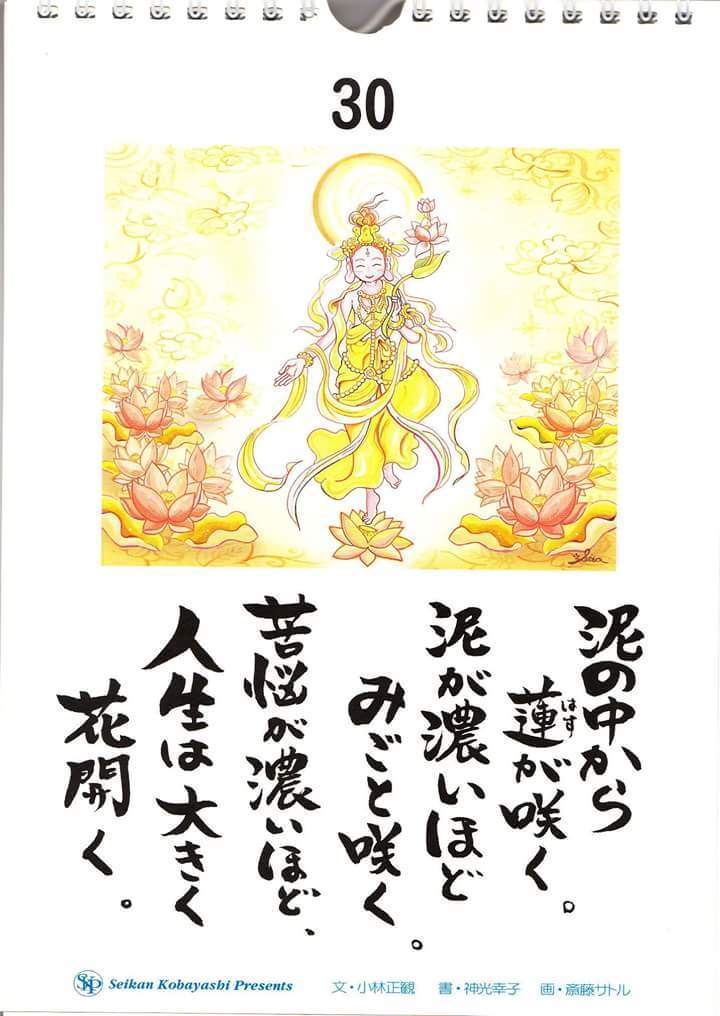 30
泥の中から
蓮が咲く。
はす
泥が濃いほど
みごと咲く。
苦悩が濃いほど、
人生は大きく
花開く。
SKP Seikan Kobayashi Presents 文・小林正観 書・神光幸子 画・斎藤サトル